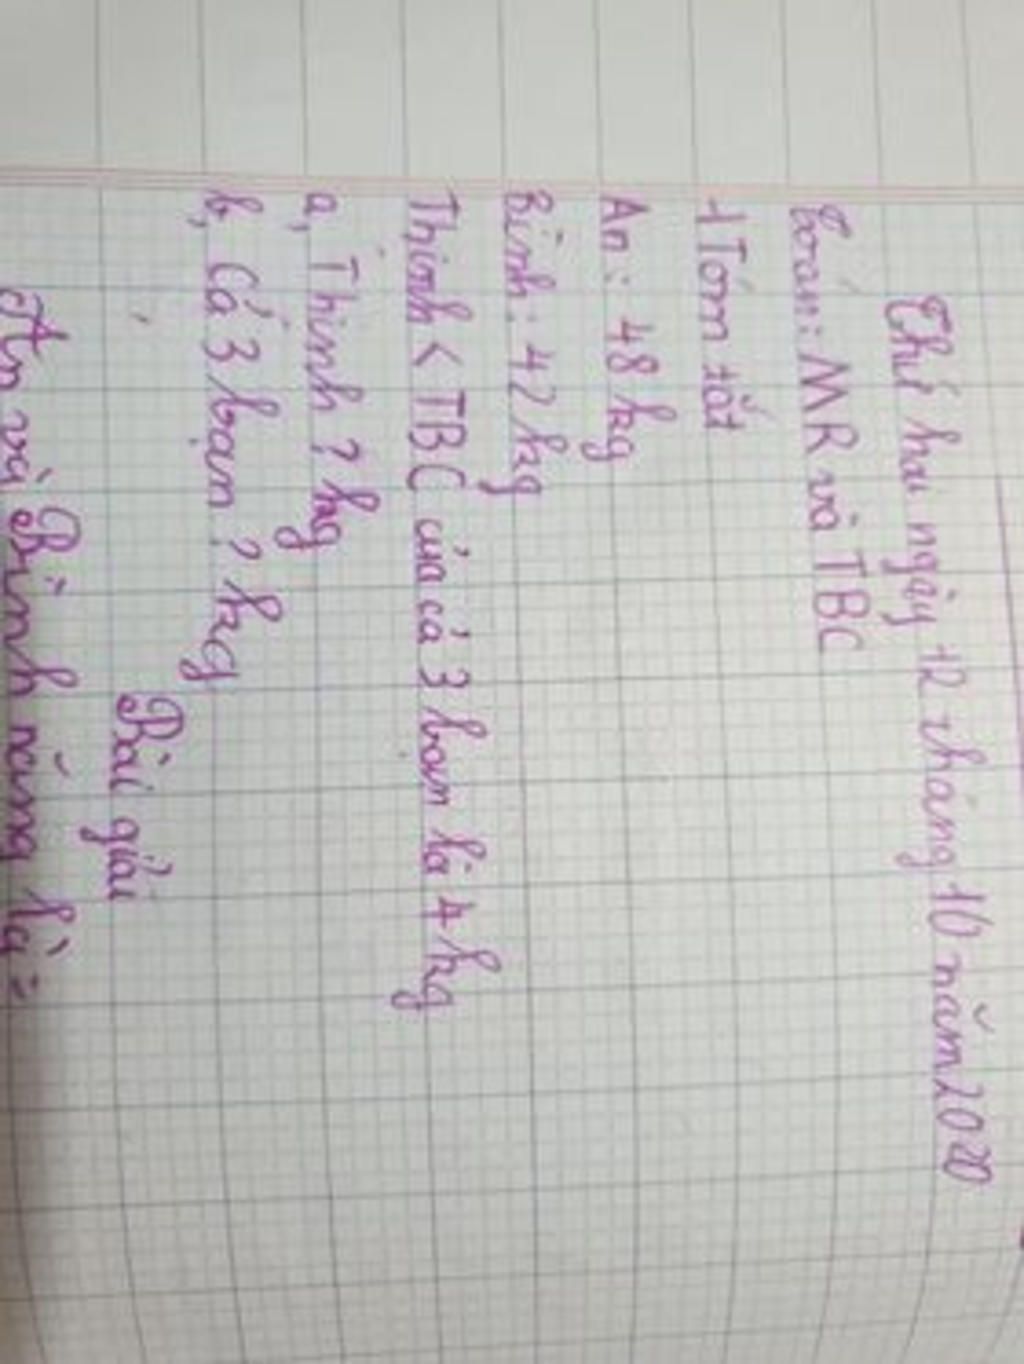 Thứ hai ngày 12 tháng 10 năm 2020
Toán: MR về TBC
1 Tóm tắt
An : 48 kg
Bình : 42 kg
Thịnh < TBC của cả 3 bạn là 4 kg
a, Thịnh ? kg
b, Cả 3 bạn ? kg
Bài giải
An và Bình nặng là :